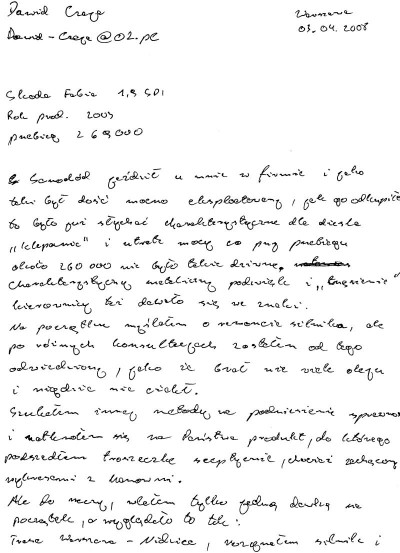 Dawid Czaja
Dawid-Czaja@o2.pl
Warszawa
03.04.2008
Skoda Fabia 1,9 SDI
Rok prod. 2003
przebieg 269000
Samochód jeździł u mnie w firmie i jako
taki był dość mocno eksploatowany, jak go odkupiłem
to było już słychać charakterystyczne dla diesla
„klepanie" i utrata mocy co przy przebiegu
około 260 000 nie było takie dziwne,
charakterystyczny metaliczny podźwięk i „trzęsienie"
kierownicy też dawało się we znaki.
Na początku myślałem o remoncie silnika, ale
po różnych konsultacjach zostałem od tego
odwiedziony, jako że brał nie wiele oleju
i nigdzie nie ciekł.
Szukałem innej metody na podniesienie sprawności
i natknąłem się na Państwa produkt, do którego
podszedłem troszeczkę sceptycznie, chociaż zachęcony
wykresami z hamowni.
Ale do rzeczy, wlałem tylko jedną dawkę na
początek, a wyglądało to tak:
Trasa Warszawa - Nidzica, rozgrzałem silnik i